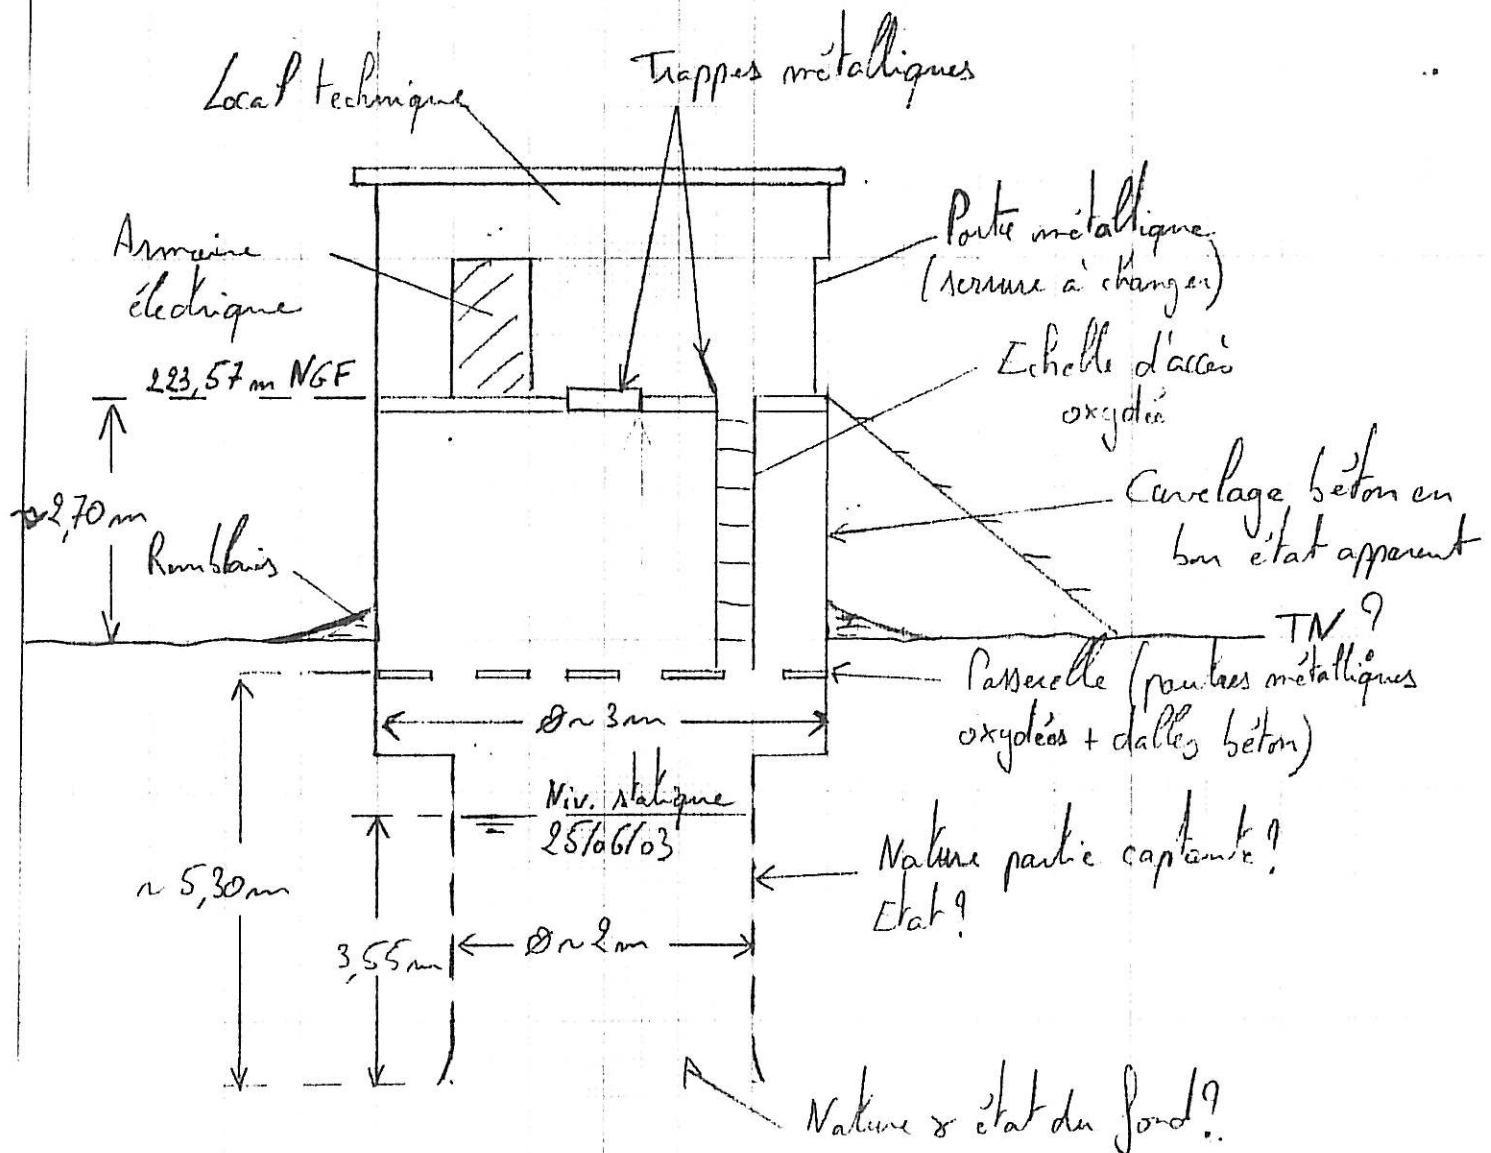 Local technique
Trappes métalliques
Armoire
électrique
Porte métallique
(serrure à changer)
223,57 m NGF
Echelle d'accès
oxydée
~2,70 m
Cuvelage béton en
bon état apparent
Remblais
TN ?
Passerelle (poutres métalliques
oxydées + dalles béton)
Ø ~ 3 m
Niv. statique
25/06/03
~ 5,30 m
Nature partie captante ?
Etat ?
Ø ~ 2 m
3,55 m
Nature & état du fond ?